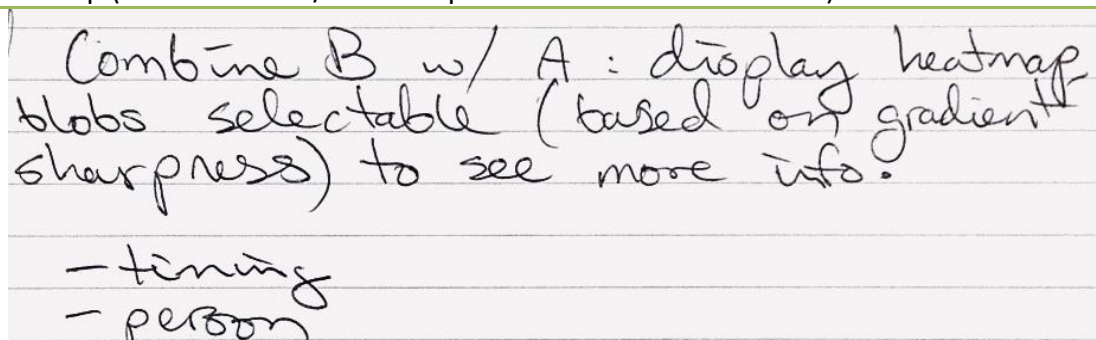 Combine B w/ A : display heatmap
blobs selectable (based on gradient
sharpness) to see more info.
- timing
- person